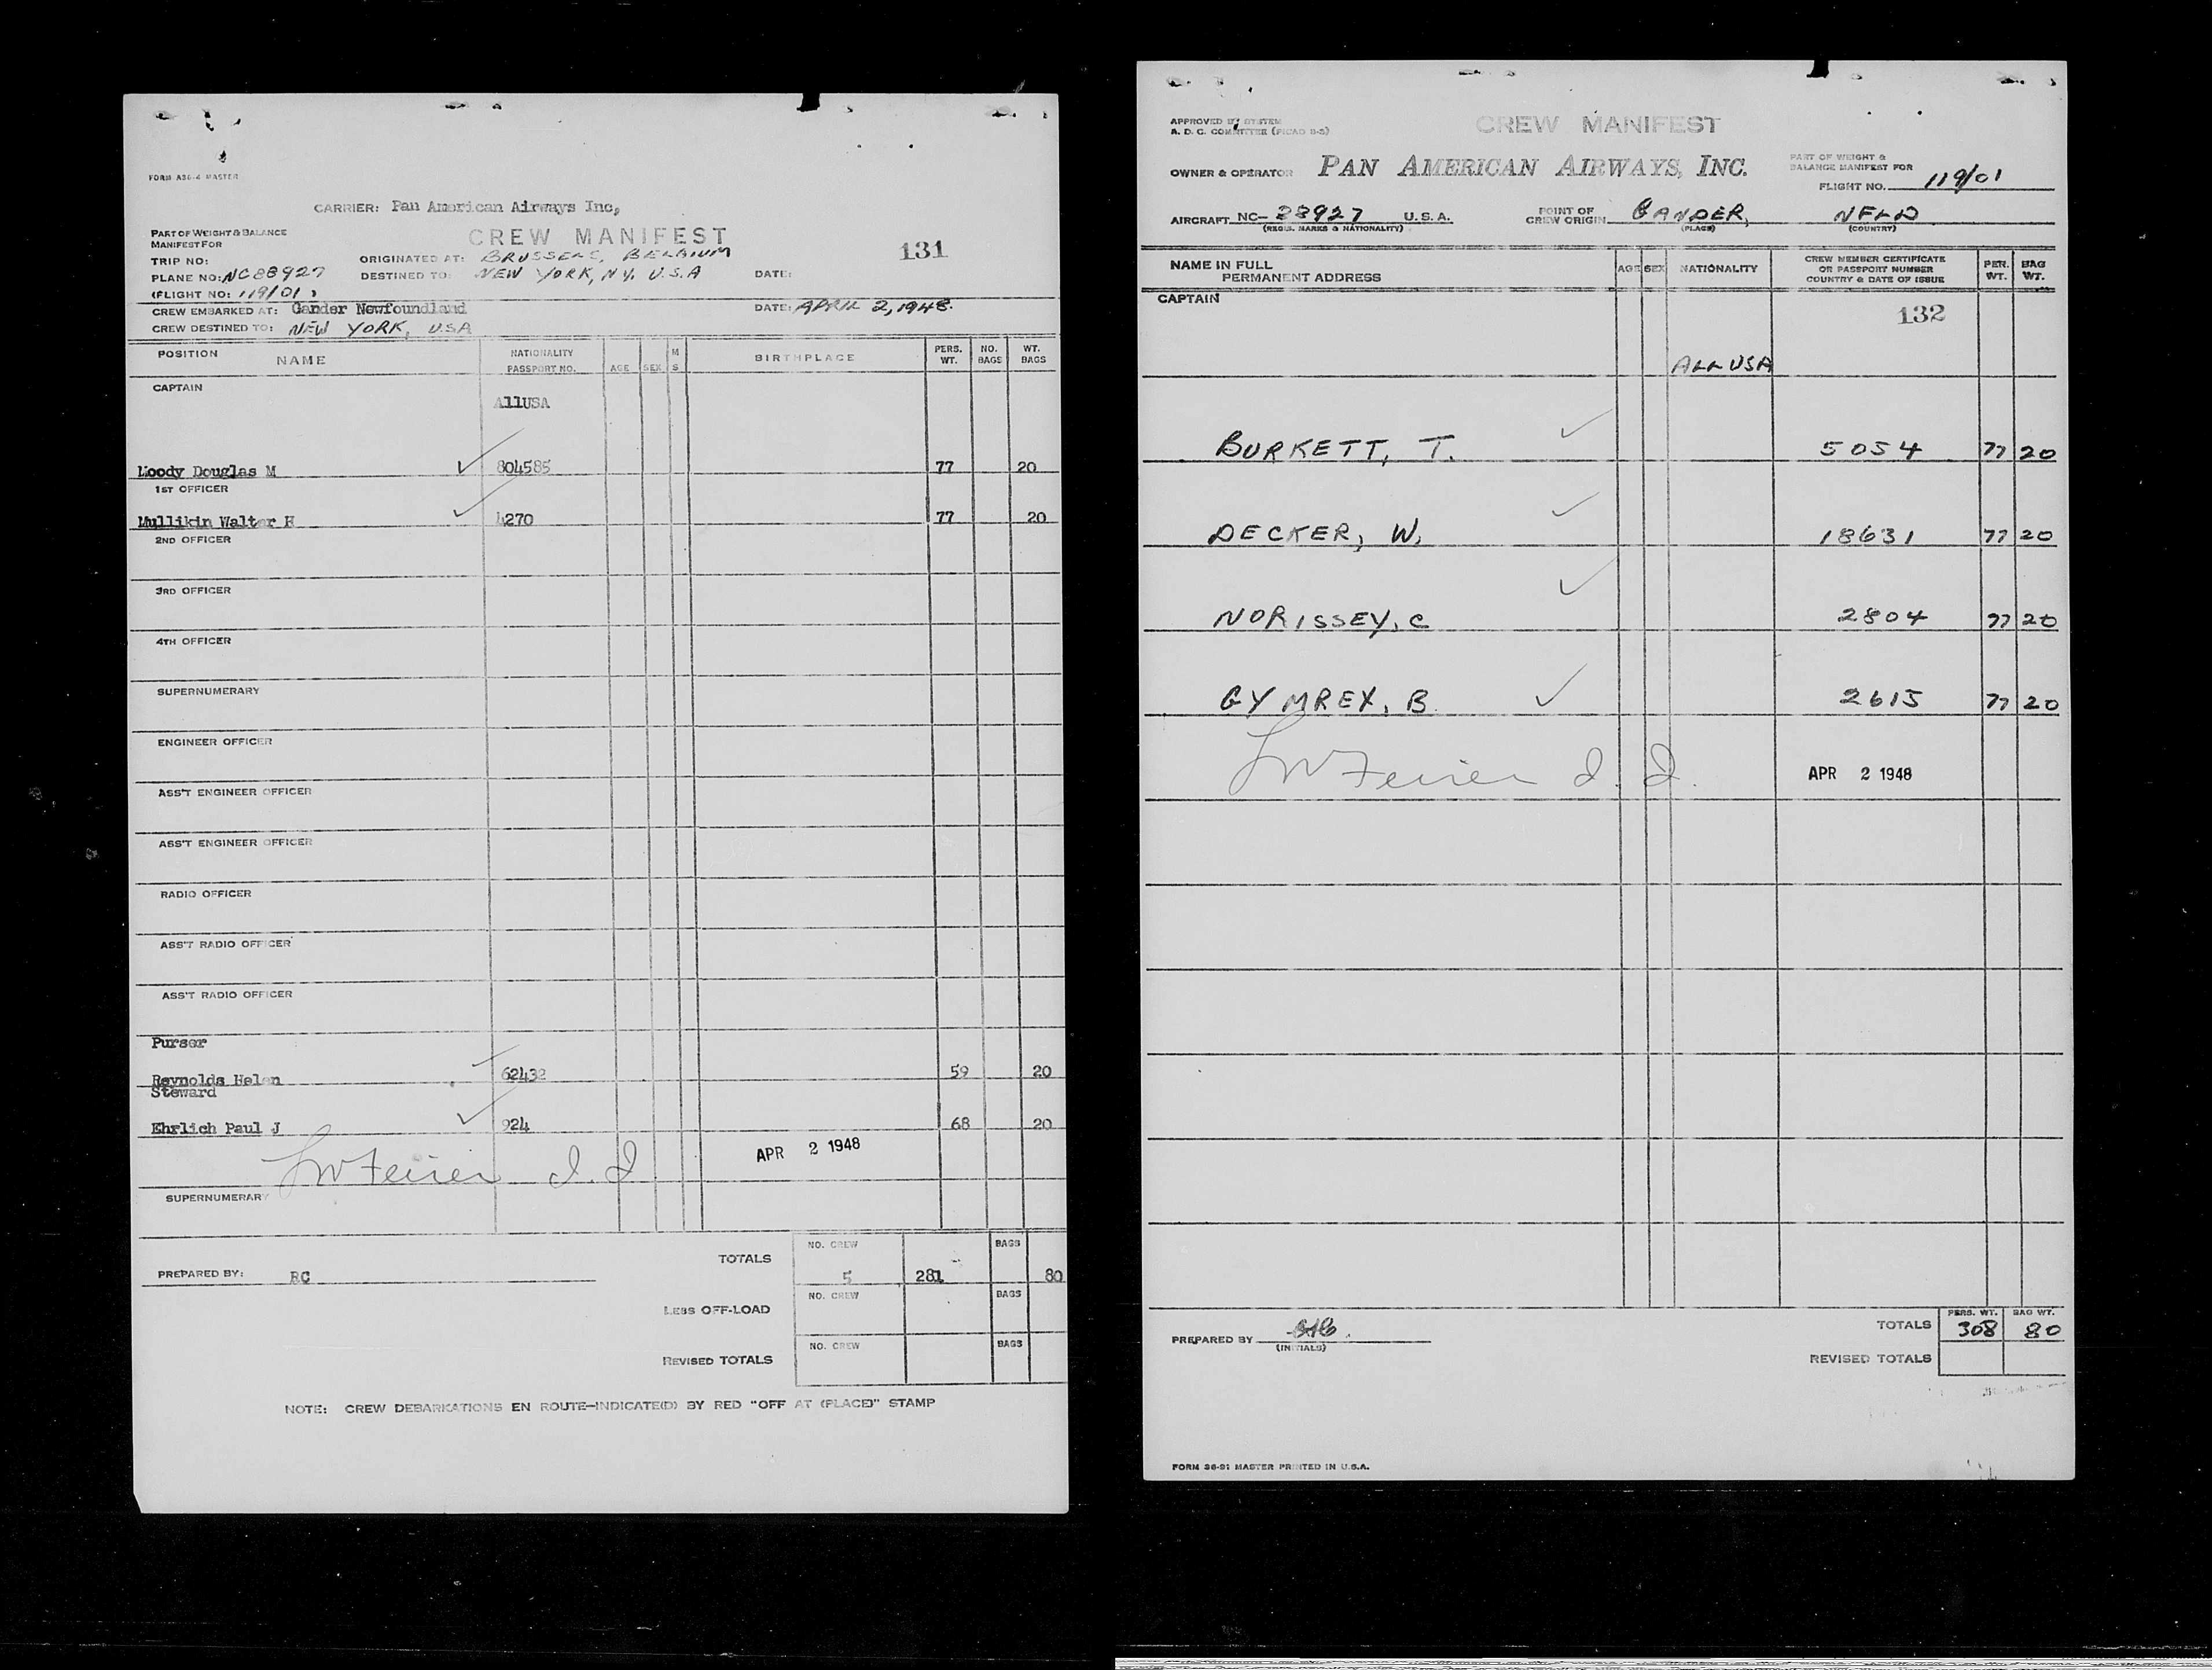 FORM A36-4 MASTER
CARRIER: Pan American Airways Inc,
PART OF WEIGHT & BALANCE
MANIFEST FOR
CREW MANIFEST
131
TRIP NO:
ORIGINATED AT: BRUSSELS, BELGIUM
PLANE NO: NC88927
DESTINED TO: NEW YORK, N.Y. U.S.A
DATE:
(FLIGHT NO: 119/01 )
CREW EMBARKED AT: Gander Newfoundland
DATE: APRIL 2, 1948.
CREW DESTINED TO: NEW YORK, USA
POSITION NAME NATIONALITY PASSPORT NO. AGE SEX M S BIRTHPLACE PERS. WT. NO. BAGS WT. BAGS
CAPTAIN
AllUSA
Moody Douglas M 804585 77 20
1ST OFFICER
Mullikin Walter H 4270 77 20
2ND OFFICER
3RD OFFICER
4TH OFFICER
SUPERNUMERARY
ENGINEER OFFICER
ASS'T ENGINEER OFFICER
ASS'T ENGINEER OFFICER
RADIO OFFICER
ASS'T RADIO OFFICER
ASS'T RADIO OFFICER
Purser
Reynolds Helen 62432 59 20
Steward
Ehrlich Paul J 924 68 20
APR 2 1948
SUPERNUMERARY
TOTALS NO. CREW 5 281 BAGS 80
PREPARED BY: RC
LESS OFF-LOAD NO. CREW BAGS
REVISED TOTALS NO. CREW BAGS
NOTE: CREW DEBARKATIONS EN ROUTE—INDICATE(D) BY RED "OFF AT (PLACE)" STAMP
APPROVED BY SYSTEM
A. D. C. COMMITTEE
CREW MANIFEST
OWNER & OPERATOR PAN AMERICAN AIRWAYS, INC.
PART OF WEIGHT &
BALANCE MANIFEST FOR
FLIGHT NO. 119/01
AIRCRAFT NC- 88927 U.S.A.
(REGIS. MARKS & NATIONALITY)
POINT OF
CREW ORIGIN GANDER, NFLD
(PLACE) (COUNTRY)
NAME IN FULL
PERMANENT ADDRESS
AGE SEX NATIONALITY
CREW MEMBER CERTIFICATE
OR PASSPORT NUMBER
COUNTRY & DATE OF ISSUE
PER. WT. BAG WT.
CAPTAIN
132
ALL USA
BURKETT, T. 5054 77 20
DECKER, W, 18631 77 20
NORISSEY, C 2804 77 20
GYMREX, B. 2615 77 20
APR 2 1948
PERS. WT. BAG WT.
TOTALS 308 80
PREPARED BY
(INITIALS)
REVISED TOTALS
FORM 36-91 MASTER PRINTED IN U.S.A.